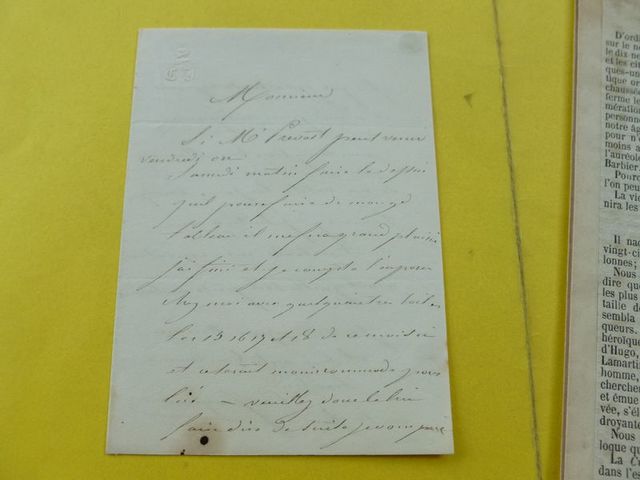 Monsieur
Si Mr Prevost peut venir
vendredi ou
Samedi matin faire le dessin
qu'il pense faire de mon gd
tableau il me fera grand plaisir
j'ai fini et je compte l'exposer
chez moi avec quelques autres toiles
les 15 16 17 et 18 de ce mois ci
et ce serait mon
veuillez donc le lui
faire dire de suite
D'ordi
sur le no
le dix ne
et les cit
ques-un
tique or
chaussée
ferme l
mération
personne
notre âg
pour n'é
moins a
l'auréol
Barbier.
Pourc
l'on peu
La vic
nira les
Il naq
vingt-ci
lonnes;
Nous
dire que
les plus
taille de
sembla
queurs.
héroïque
d'Hugo,
Lamartin
homme,
chercher
et émue
vée, s'él
droyante
Nous
loque qu
La C
dans l'es